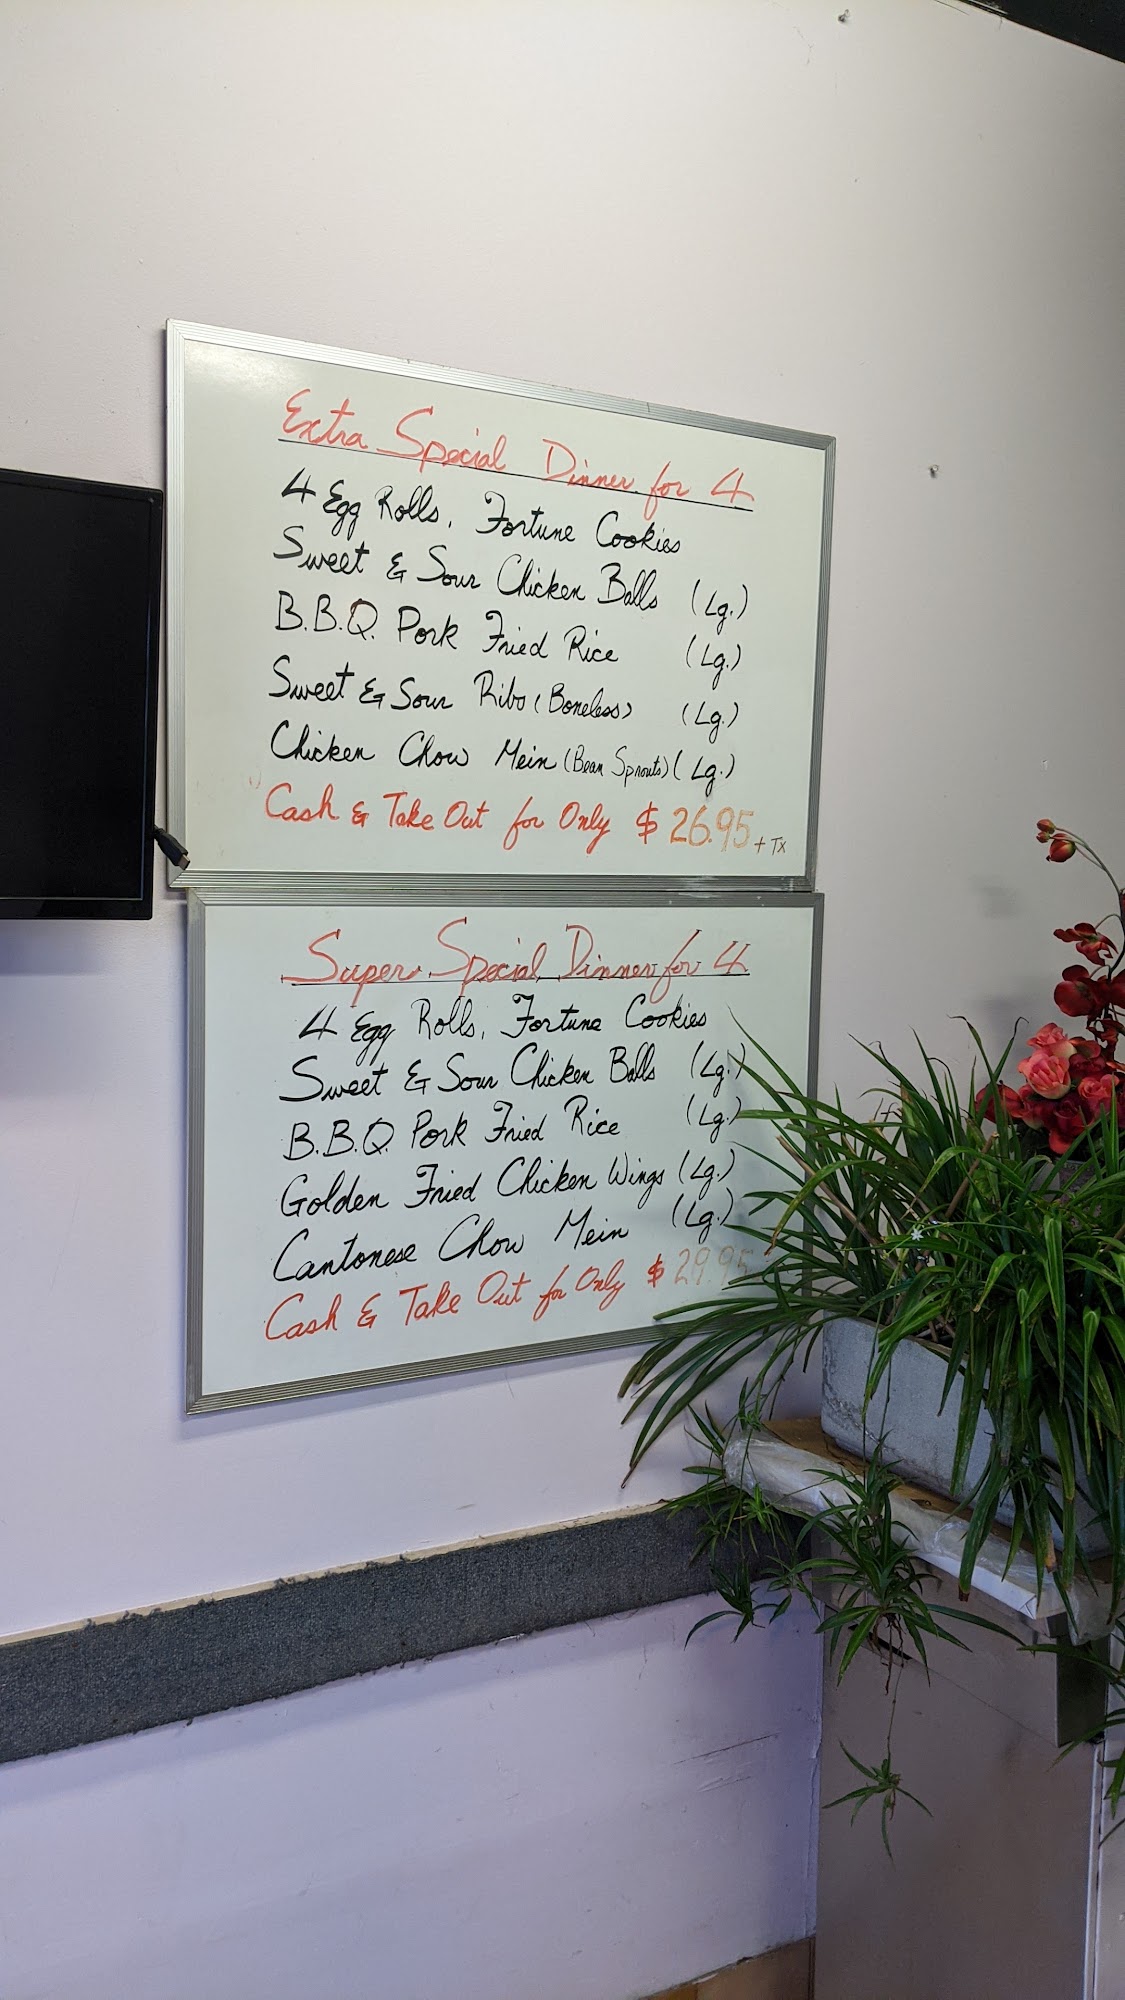 Extra Special Dinner for 4
4 Egg Rolls, Fortune Cookies
Sweet & Sour Chicken Balls (Lg.)
B.B.Q. Pork Fried Rice (Lg.)
Sweet & Sour Ribs (Boneless) (Lg.)
Chicken Chow Mein (Bean Sprouts) (Lg.)
Cash & Take Out for Only $ 26.95 + Tx
Super Special Dinner for 4
4 Egg Rolls, Fortune Cookies
Sweet & Sour Chicken Balls (Lg.)
B.B.Q. Pork Fried Rice (Lg.)
Golden Fried Chicken Wings (Lg.)
Cantonese Chow Mein (Lg.)
Cash & Take Out for Only $ 29.95